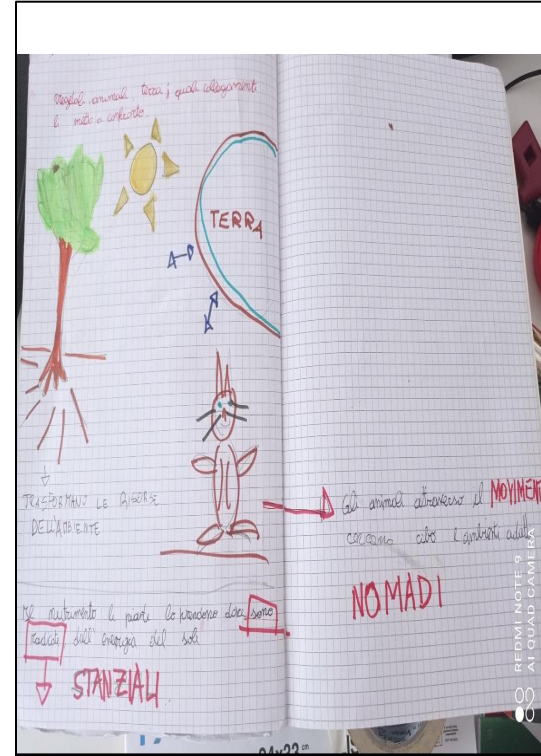 Vegetali animali terra; quali collegamenti
li metto a confronto.
TERRA
TRASFORMANO LE RISORSE
DELL'AMBIENTE
Gli animali attraverso il MOVIMEN
cercano cibo e ambienti adat
NOMADI
Il nutrimento le piante lo prendono dove sono
radicate dall'energia del sole
STANZIALI
REDMI NOTE 9
AI QUAD CAMERA